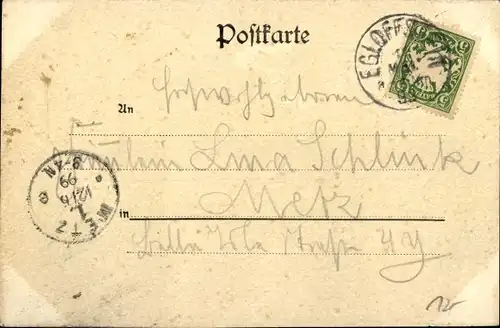 Postkarte
EGLOFFS
An Hochwohlgeboren
Fräulein Lina Schlück
in Metz
Belle Isle Straße 44
METZ
12/6
99
8-9N
12-